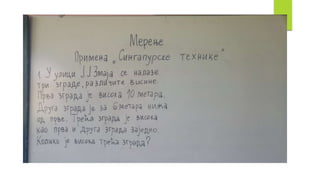 Мерење
Примена „Сингапурске технике"
1. У улици JJ Змаја се налазе
три зграде, различите висине.
Прва зграда је висока 10 метара.
Друга зграда је за 6 метара нижа
од прве. Трећа зграда је висока
као прва и друга зграда заједно.
Колико је висока трећа зграда?